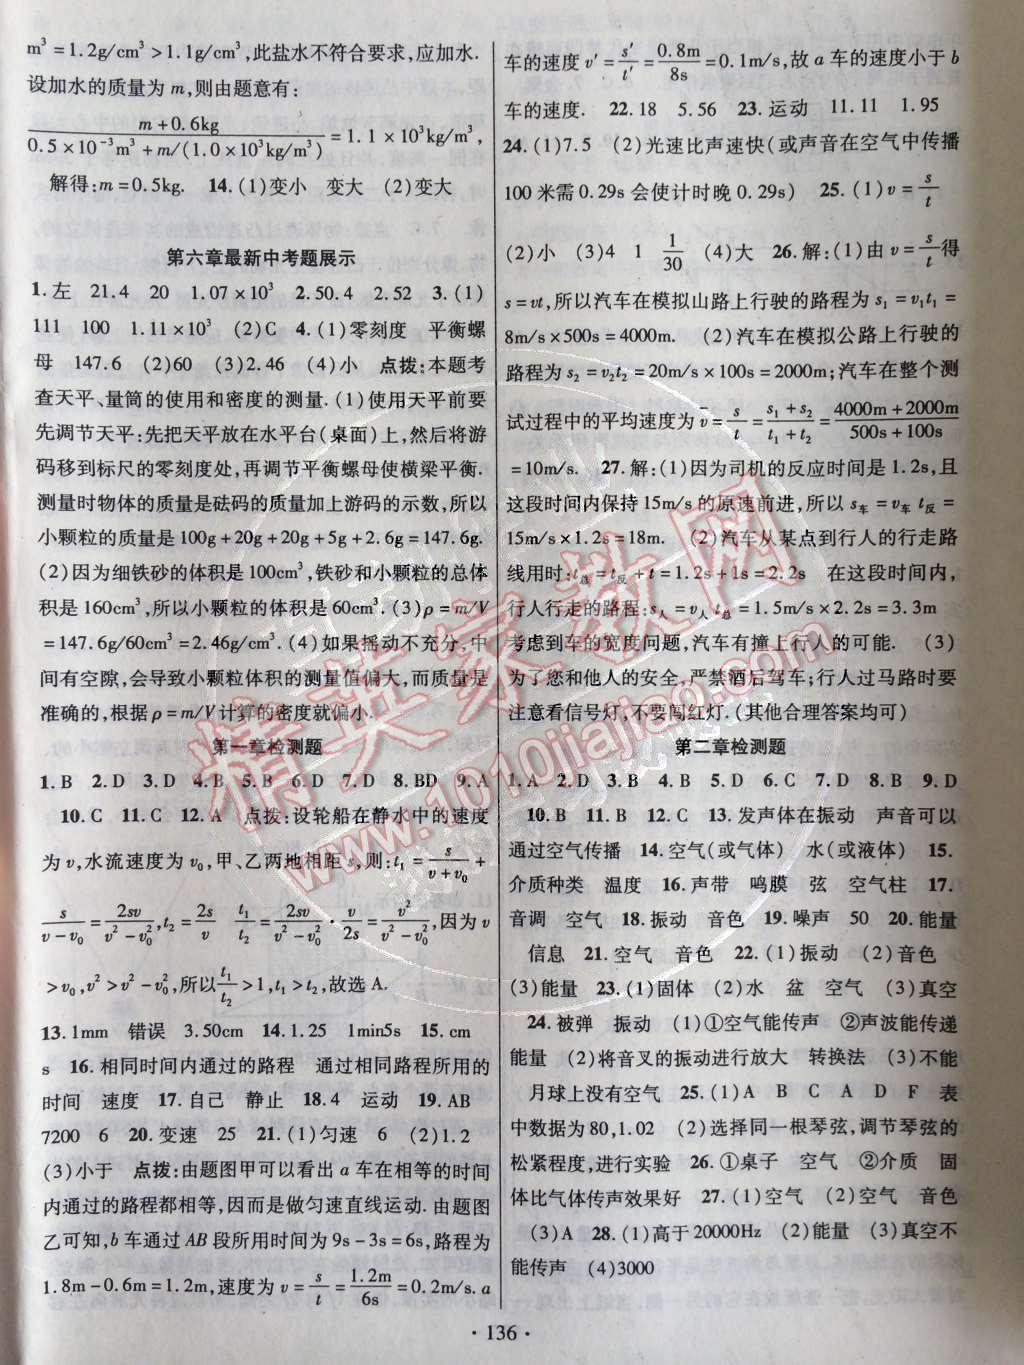 m³=1.2g/cm³>1.1g/cm³,此盐水不符合要求,应加水.
设加水的质量为m,则由题意有:
(m+0.6kg)/(0.5×10⁻³m³+m/(1.0×10³kg/m³))=1.1×10³kg/m³,
解得:m=0.5kg. 14.(1)变小 变大 (2)变大
第六章最新中考题展示
1.左 21.4 20 1.07×10³ 2.50.4 2.52 3.(1)
111 100 1.11×10³ (2)C 4.(1)零刻度 平衡螺
母 147.6 (2)60 (3)2.46 (4)小 点拨:本题考
查天平、量筒的使用和密度的测量.(1)使用天平前要
先调节天平:先把天平放在水平台(桌面)上,然后将游
码移到标尺的零刻度处,再调节平衡螺母使横梁平衡.
测量时物体的质量是砝码的质量加上游码的示数,所以
小颗粒的质量是100g+20g+20g+5g+2.6g=147.6g.
(2)因为细铁砂的体积是100cm³,铁砂和小颗粒的总体
积是160cm³,所以小颗粒的体积是60cm³.(3)ρ=m/V
=147.6g/60cm³=2.46g/cm³.(4)如果摇动不充分,中
间有空隙,会导致小颗粒体积的测量值偏大,而质量是
准确的,根据ρ=m/V计算的密度就偏小.
第一章检测题
1.B 2.D 3.D 4.B 5.B 6.D 7.D 8.BD 9.A
10.C 11.C 12.A 点拨:设轮船在静水中的速度
为v,水流速度为v₀,甲、乙两地相距s,则:t₁=s/(v+v₀)+
s/(v-v₀)=2sv/(v²-v₀²),t₂=2s/v t₁/t₂=2sv/(v²-v₀²)·v/2s=v²/(v²-v₀²),因为v
>v₀,v²>v²-v₀²,所以t₁/t₂>1,t₁>t₂,故选A.
13.1mm 错误 3.50cm 14.1.25 1min5s 15.cm
s 16.相同时间内通过的路程 通过相同路程所用的
时间 速度 17.自己 静止 18.4 运动 19.AB
7200 6 20.变速 25 21.(1)匀速 6 (2)1.2
(3)小于 点拨:由题图甲可以看出a车在相等的时间
内通过的路程都相等,因而是做匀速直线运动.由题图
乙可知,b车通过AB段所用时间为9s-3s=6s,路程为
1.8m-0.6m=1.2m,速度为v=s/t=1.2m/6s=0.2m/s.a
车的速度v′=s′/t′=0.8m/8s=0.1m/s,故a车的速度小于b
车的速度. 22.18 5.56 23.运动 11.11 1.95
24.(1)7.5 (2)光速比声速快(或声音在空气中传播
100米需0.29s会使计时晚0.29s) 25.(1)v=s/t
(2)小 (3)4 1 1/30 (4)大 26.解:(1)由v=s/t得
s=vt,所以汽车在模拟山路上行驶的路程为s₁=v₁t₁=
8m/s×500s=4000m. (2)汽车在模拟公路上行驶的
路程为s₂=v₂t₂=20m/s×100s=2000m;汽车在整个测
试过程中的平均速度为v̄=s/t=(s₁+s₂)/(t₁+t₂)=(4000m+2000m)/(500s+100s)
=10m/s. 27.解:(1)因为司机的反应时间是1.2s,且
这段时间内保持15m/s的原速前进,所以s车=v车t反=
15m/s×1.2s=18m. (2)汽车从某点到行人的行走路
线用时:t总=t反+t=1.2s+1s=2.2s 在这段时间内,
行人行走的路程:s人=v人t总=1.5m/s×2.2s=3.3m
考虑到车的宽度问题,汽车有撞上行人的可能. (3)
为了您和他人的安全,严禁酒后驾车;行人过马路时要
注意看信号灯,不要闯红灯.(其他合理答案均可)
第二章检测题
1.A 2.D 3.D 4.B 5.D 6.C 7.D 8.B 9.D
10.B 11.B 12.C 13.发声体在振动 声音可以
通过空气传播 14.空气(或气体) 水(或液体) 15.
介质种类 温度 16.声带 鸣膜 弦 空气柱 17.
音调 空气 18.振动 音色 19.噪声 50 20.能量
信息 21.空气 音色 22.(1)振动 (2)音色
(3)能量 23.(1)固体 (2)水 盆 空气 (3)真空
24.被弹 振动 (1)①空气能传声 ②声波能传递
能量 (2)将音叉的振动进行放大 转换法 (3)不能
月球上没有空气 25.(1)A B C A D F 表
中数据为80,1.02 (2)选择同一根琴弦,调节琴弦的
松紧程度,进行实验 26.①桌子 空气 ②介质 固
体比气体传声效果好 27.(1)空气 (2)空气 音色
(3)A 28.(1)高于20000Hz (2)能量 (3)真空不
能传声 (4)3000
· 136 ·
精英家教网
www.1010jiajiao.com